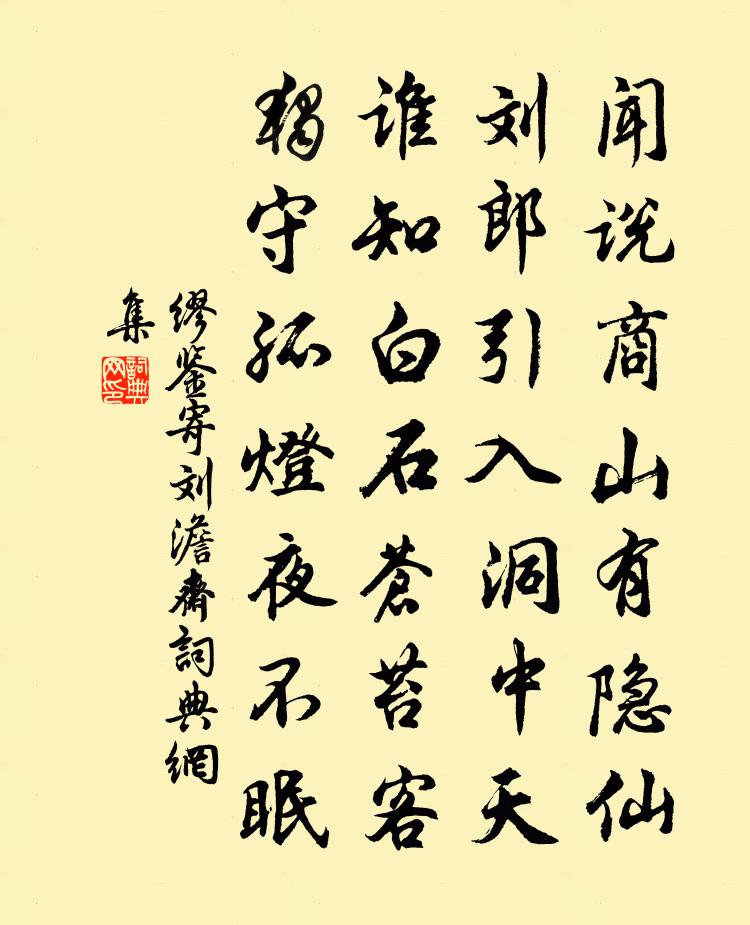 闻说商山有隐仙
刘郎引入洞中天
谁知白石苍苔客
独守孤燈夜不眠
缪鉴寄刘澹斋詞典網
集
詞典网印